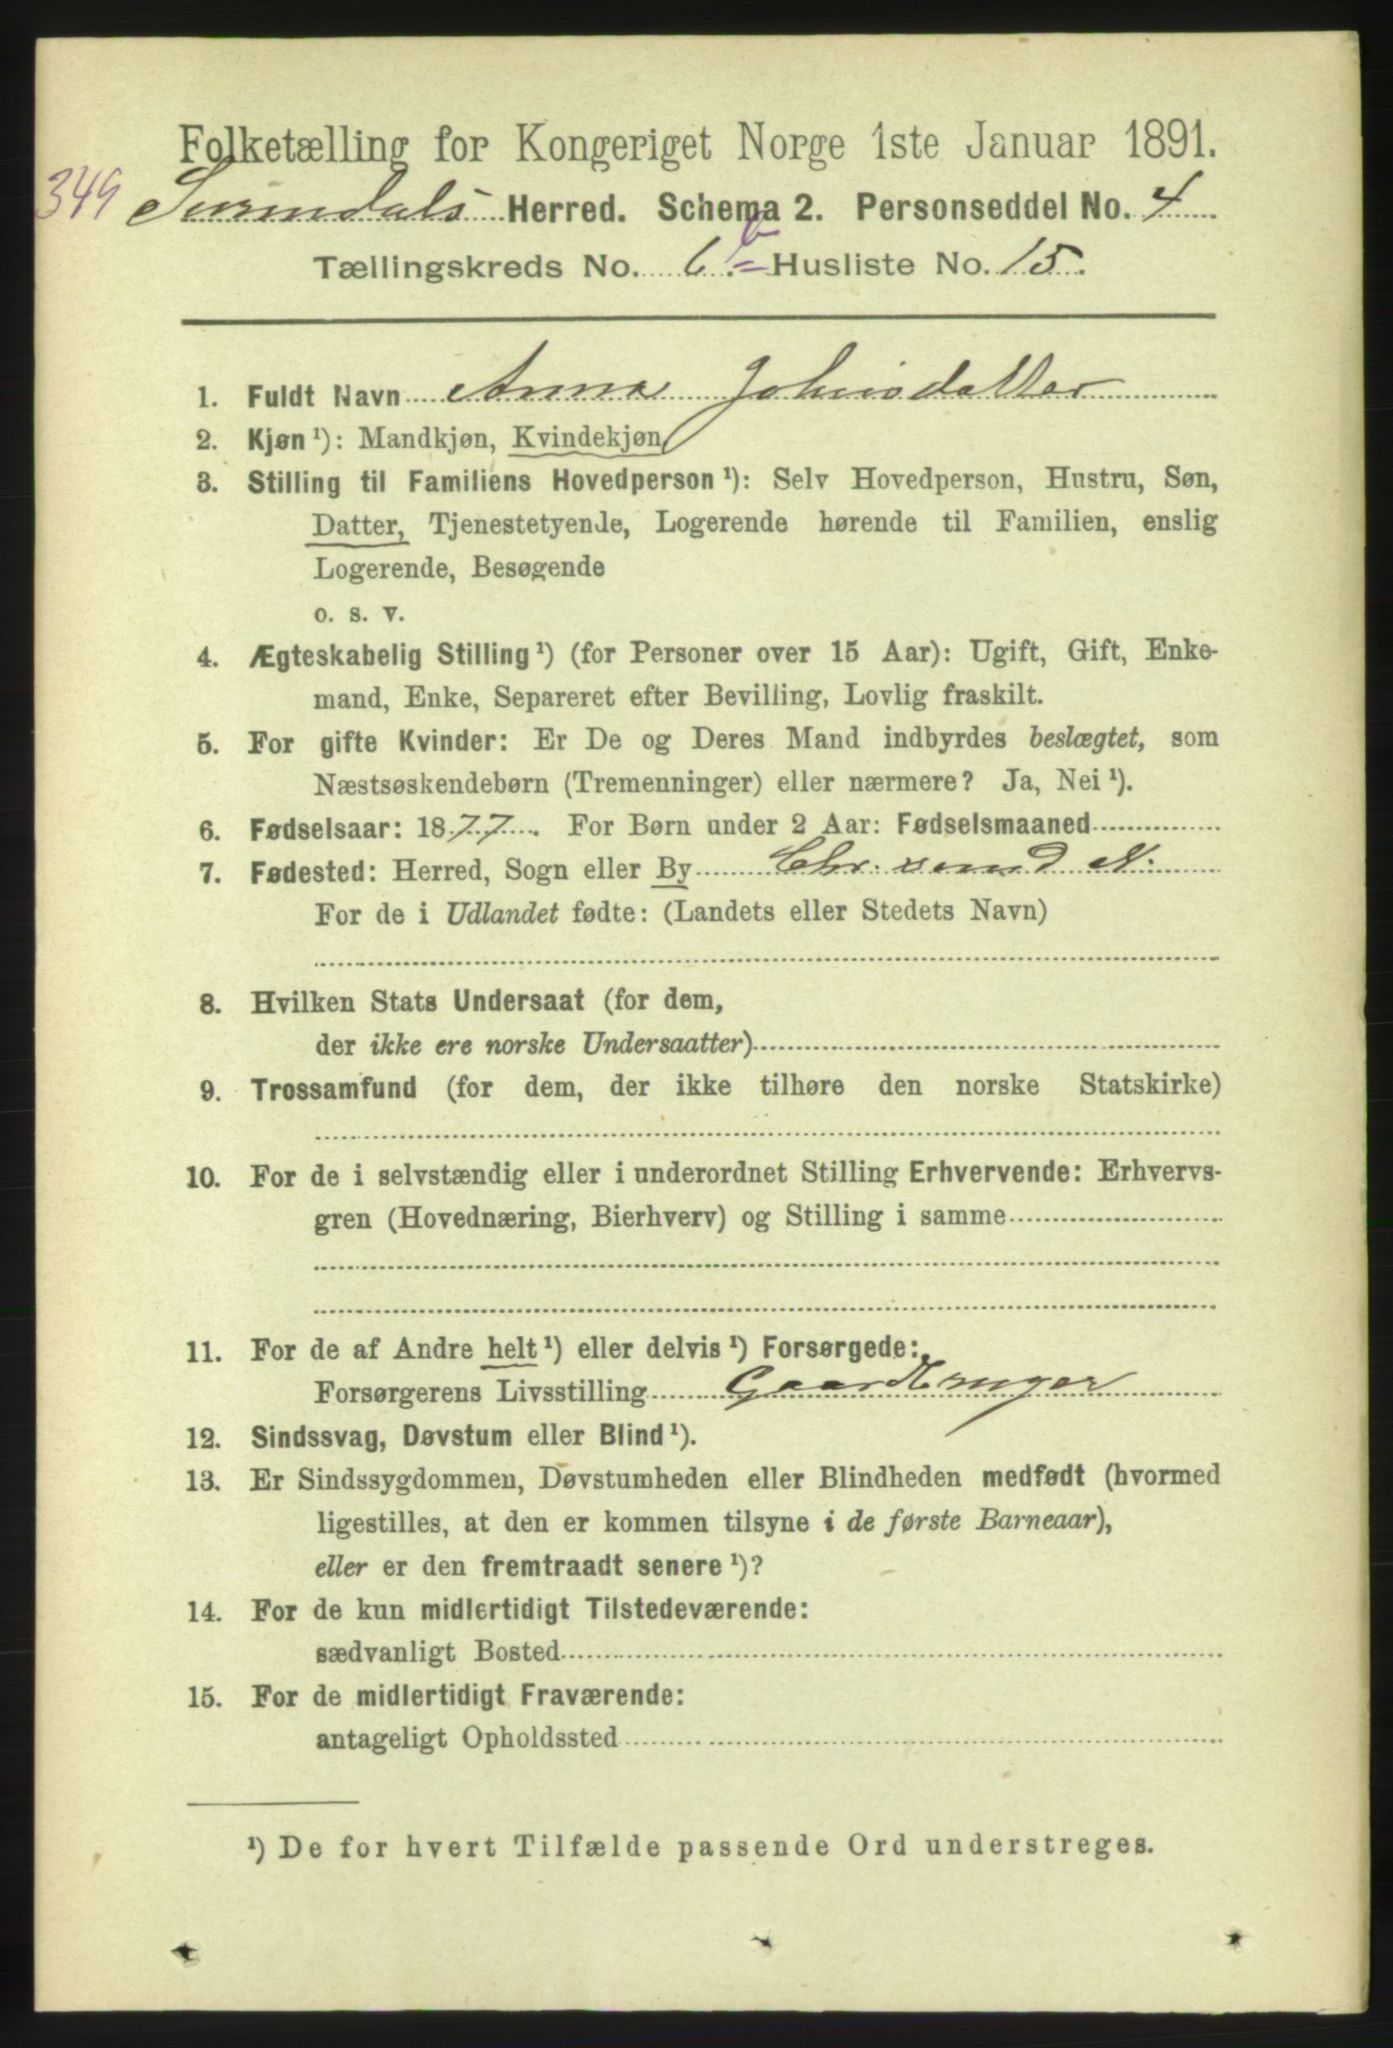 Folketælling for Kongeriget Norge 1ste Januar 1891.
349 Surendals Herred. Schema 2. Personseddel No. 4
Tællingskreds No. 6 b. Husliste No. 15.
1. Fuldt Navn Anna Johnsdatter
2. Kjøn ¹): Mandkjøn, Kvindekjøn
3. Stilling til Familiens Hovedperson ¹): Selv Hovedperson, Hustru, Søn,
Datter, Tjenestetyende, Logerende hørende til Familien, enslig
Logerende, Besøgende
o. s. v.
4. Ægteskabelig Stilling ¹) (for Personer over 15 Aar): Ugift, Gift, Enke-
mand, Enke, Separeret efter Bevilling, Lovlig fraskilt.
5. For gifte Kvinder: Er De og Deres Mand indbyrdes beslægtet, som
Næstsøskendebørn (Tremenninger) eller nærmere? Ja, Nei ¹).
6. Fødselsaar: 1877. For Børn under 2 Aar: Fødselsmaaned
7. Fødested: Herred, Sogn eller By Chr.sund N.
For de i Udlandet fødte: (Landets eller Stedets Navn)
8. Hvilken Stats Undersaat (for dem,
der ikke ere norske Undersaatter)
9. Trossamfund (for dem, der ikke tilhøre den norske Statskirke)
10. For de i selvstændig eller i underordnet Stilling Erhvervende: Erhvervs-
gren (Hovednæring, Bierhverv) og Stilling i samme
11. For de af Andre helt ¹) eller delvis ¹) Forsørgede:
Forsørgerens Livsstilling Gaardbruger
12. Sindssvag, Døvstum eller Blind ¹).
13. Er Sindssygdommen, Døvstumheden eller Blindheden medfødt (hvormed
ligestilles, at den er kommen tilsyne i de første Barneaar),
eller er den fremtraadt senere ¹)?
14. For de kun midlertidigt Tilstedeværende:
sædvanligt Bosted
15. For de midlertidigt Fraværende:
antageligt Opholdssted
¹) De for hvert Tilfælde passende Ord understreges.